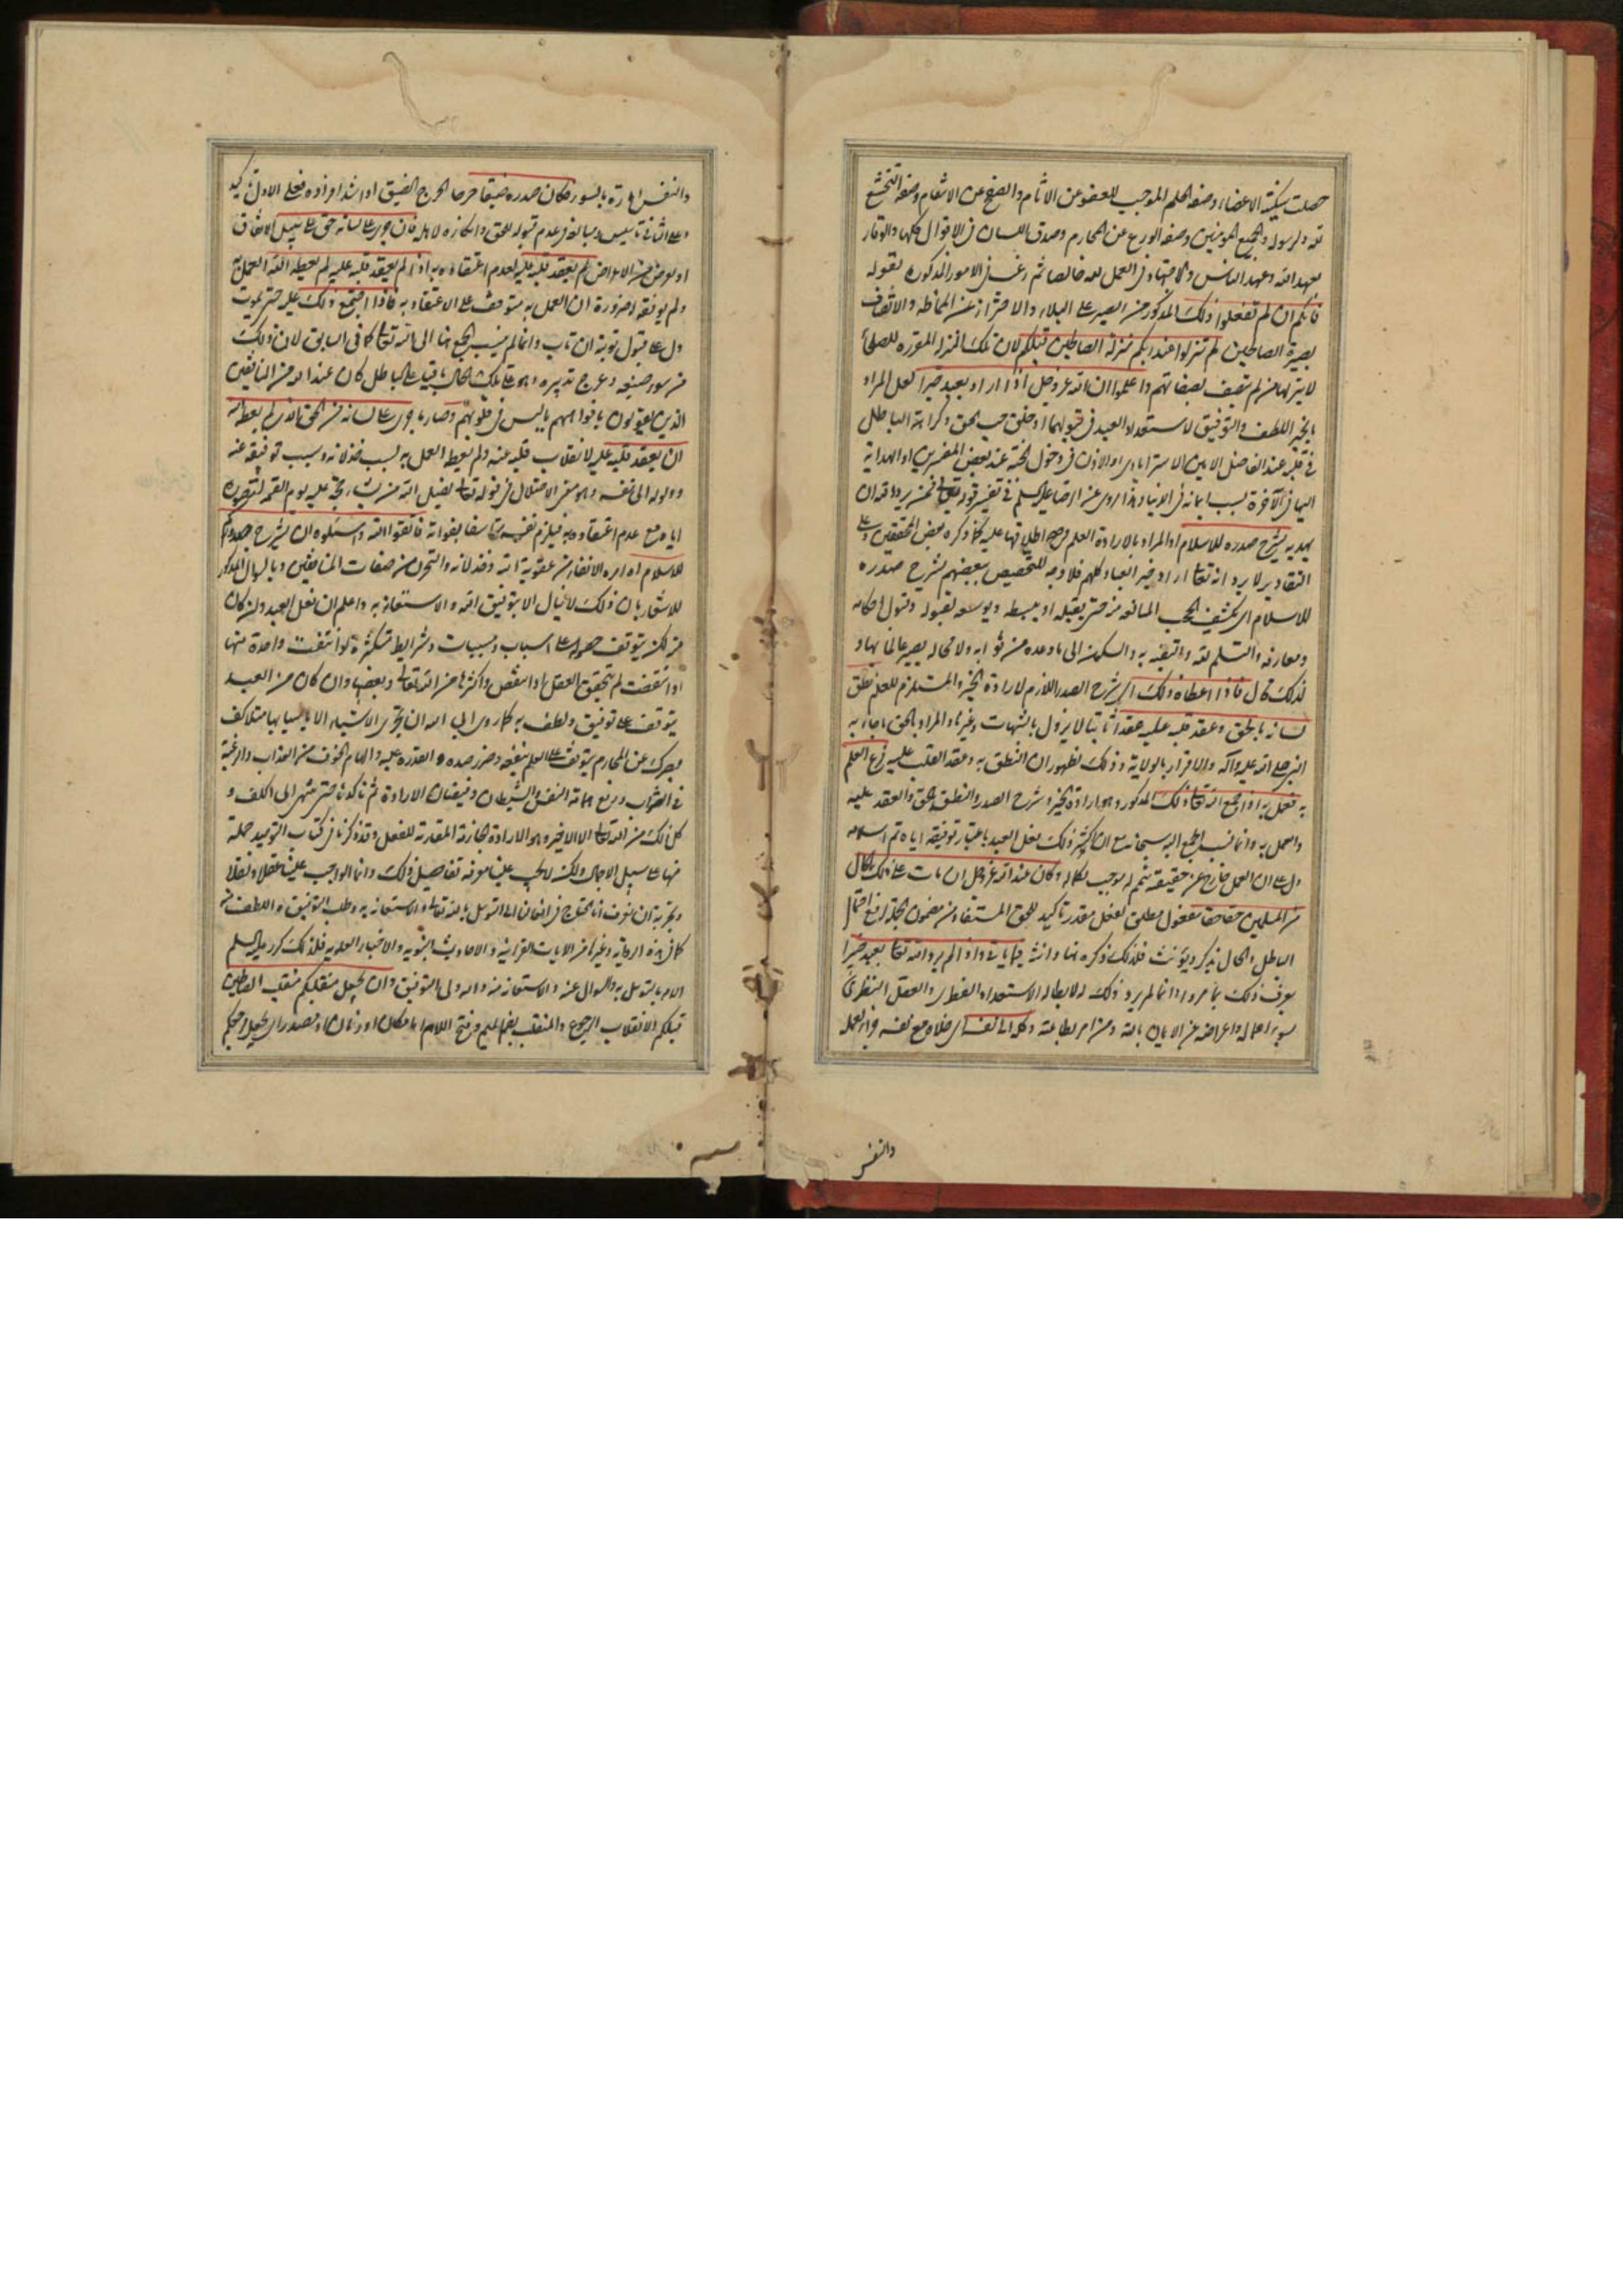 حصلت سكينة الاعضاء وصفة الحلم الموجب للعفو عن الاثام والصفح عن الانتقام وصفة التخشع
لله ولرسوله ولجميع المؤمنين وصفة الورع عن المحارم وصدق اللسان في الاقوال كلها والوفاء
بعهد الله وعهد الناس والاجتهاد في العمل لله خالصا ثم رغب في الامور المذكورة بقوله
فانكم ان لم تفعلوا ذلك المذكور من الصبر على البلاء والاحتراز عن المماظة والاتصاف
بصيرة الصالحين لم تنزلوا عند ربكم منزلة الصالحين قبلكم لان تلك المنزلة المقررة للصلحاء
لا ينزلها من لم يتصف بصفاتهم واعلموا ان الله عز وجل اذا اراد بعبد خيرا لعل المراد
بالخير اللطف والتوفيق لاستعداد العبد في قبولهما او خلق حب الحق وكراهة الباطل
في قلبه عند الفاضل الامين الاسترابادي او الاذن في دخول الجنة عند بعض المفسرين او الهداية
اليها في الآخرة بسبب ايمانه في الدنيا وهذا روي عن الرضا عليه السلم في تفسير قوله تعالى فمن يرد الله ان
يهديه يشرح صدره للاسلام او المراد بالارادة العلم وصح اطلاقها عليه كما ذكره بعض المحققين وعلى
التقادير لا يرد انه تعالى اراد خير العباد كلهم فلا وجه للتخصيص ببعضهم شرح صدره
للاسلام اي كشف الحجب المانعة من حتى يقبله او يبسطه ويوسعه لقبوله وقبول احكامه
ومعارفه والتسلم لله والثقة به والسكون الى ما وعده من ثوابه ولا محالة يصير عالما بها و
لذلك قال فاذا اعطاه ذلك اي شرح الصدر اللازم لارادة الخير والمستلزم للعلم نطق
لسانه بالحق وعقد قلبه عليه عقدا ثابتا لا يزول بالشبهات وغيرها والمراد بالحق ما جاء به
النبي صلى الله عليه واله والاقرار بالولاية وذلك لظهور ان النطق به وعقد القلب عليه فرع العلم
به فعمل به اذا جمع الله تعالى ذلك المذكور وهو ارادة الخير وشرح الصدر والنطق بالحق والعقد عليه
والعمل به وانما نسب الجمع اليه سبحانه مع ان اكثر ذلك بفعل العبد باعتبار توفيقه اياه تم اسلامه
دل على ان العمل خارج عن حقيقته متمم له موجب لكماله وكان عند الله عز وجل ان مات على ذلك الحال
من المسلمين حقا حقا مفعول مطلق لفعل مقدر تاكيد للحق المستفاد من مضمون الجملة لرفع احتمال
الباطل والحال يذكر ويؤنث فلذلك ذكره هنا وانثه فيما ياتي واذا لم يرد الله تعالى بعبد خيرا
يعرف ذلك بما مر وانما لم يرد ذلك له لابطاله الاستعداد الفطري والعقل النظري
بسوء اعماله واعراضه عن الايمان بالله ومن امر بطاعته وكله الى نفسه اي خلاه مع نفسه فزاد لعمله
والنفس
والنفس امارة بالسوء وكان صدره ضيقا حرجا الحرج الضيق او اشد افراده فعلى الاول تاكيد
وعلى الثاني تاسيس ومبالغة في عدم قبوله للحق وانكاره لاهله فان جرى على لسانه حق على سبيل الاتفاق
او لغرض من الاغراض لم يعقد قلبه عليه لعدم اعتقاده به اذا لم يعقد قلبه عليه لم يعطه الله العمل به
ولم يوفقه لضرورة ان العمل به متوقف على الاعتقاد به فاذا اجتمع ذلك عليه حتى يموت
دل على قبول توبته ان تاب وانما لم ينسب الجمع هنا الى الله تعالى كما في السابق لان ذلك
من سوء صنيعه وعوج تدبيره وهو على تلك الحال باقيا على الباطل كان عند الله من المنافقين
الذين يقولون بافواههم ما ليس في قلوبهم وصار ما جرى على لسانه من الحق الذي لم يعطه الله
ان يعقد قلبه عليه لانقلاب قلبه عنه ولم يعطه العمل به بسبب خذلانه وسبب توفيقه عنه
ووكوله الى نفسه وهو معنى الاضلال في قوله تعالى يضل الله من يشاء حجة عليه يوم القيمة لتصوره
اياه مع عدم اعتقاده به فيلزم تعذيبه بها فاتقوا الله واسئلوه ان يشرح صدوركم
للاسلام امر امره الاتقاء من عقوبة الله وخذلانه والتحرز من صفات المنافقين وبالسؤال المذكور
للاشعار بان ذلك لا ينال الا بتوفيق الله والاستعانة به واعلم ان فعل العبد وان كان
منه لكن يتوقف حصوله على اسباب ومسببات وشرايط متكثرة لو انتفت واحدة منها
او انتقضت لم يتحقق الفعل او انتقص واكثرها من الله تعالى وبعضها وان كان من العبد
يتوقف على توفيق ولطف به كما روي ابى الله ان يجري الاشياء الا باسبابها مثلا كف
بصرك عن المحارم يتوقف على العلم بنفعه وضرر ضده والقدرة عليه والهام الخوف من العذاب والرغبة
في الثواب ودفع حماة النفس والشيطان وفيضان الارادة ثم تاكدها حتى ينتهي الى الكف و
كل ذلك من الله تعالى الا الاخير وهو الارادة الجازمة المقارنة للفعل وقد ذكرنا في كتاب التوحيد جملة
منها على سبيل الاجمال ولكن لا يجب علينا معرفة تفاصيل ذلك وانما الواجب علينا عقلا ونقلا
وتجربة ان نعرف انا نحتاج في افعالنا الى التوسل بالله تعالى والاستعانة به وطلب التوفيق واللطف منه
كما في هذه الرواية وغيرها من الايات القرآنية والاحاديث النبوية والاخبار العلوية فلذلك كرر عليه السلم
الامر بالتوسل به والسؤال عنه والاستعانة منه والله ولي التوفيق وان يجعل منقلبكم منقلب الصالحين
قبلكم الانقلاب الرجوع والمنقلب بضم الميم وفتح اللام اما مكان او زمان او مصدر اي يجعل رجوعكم